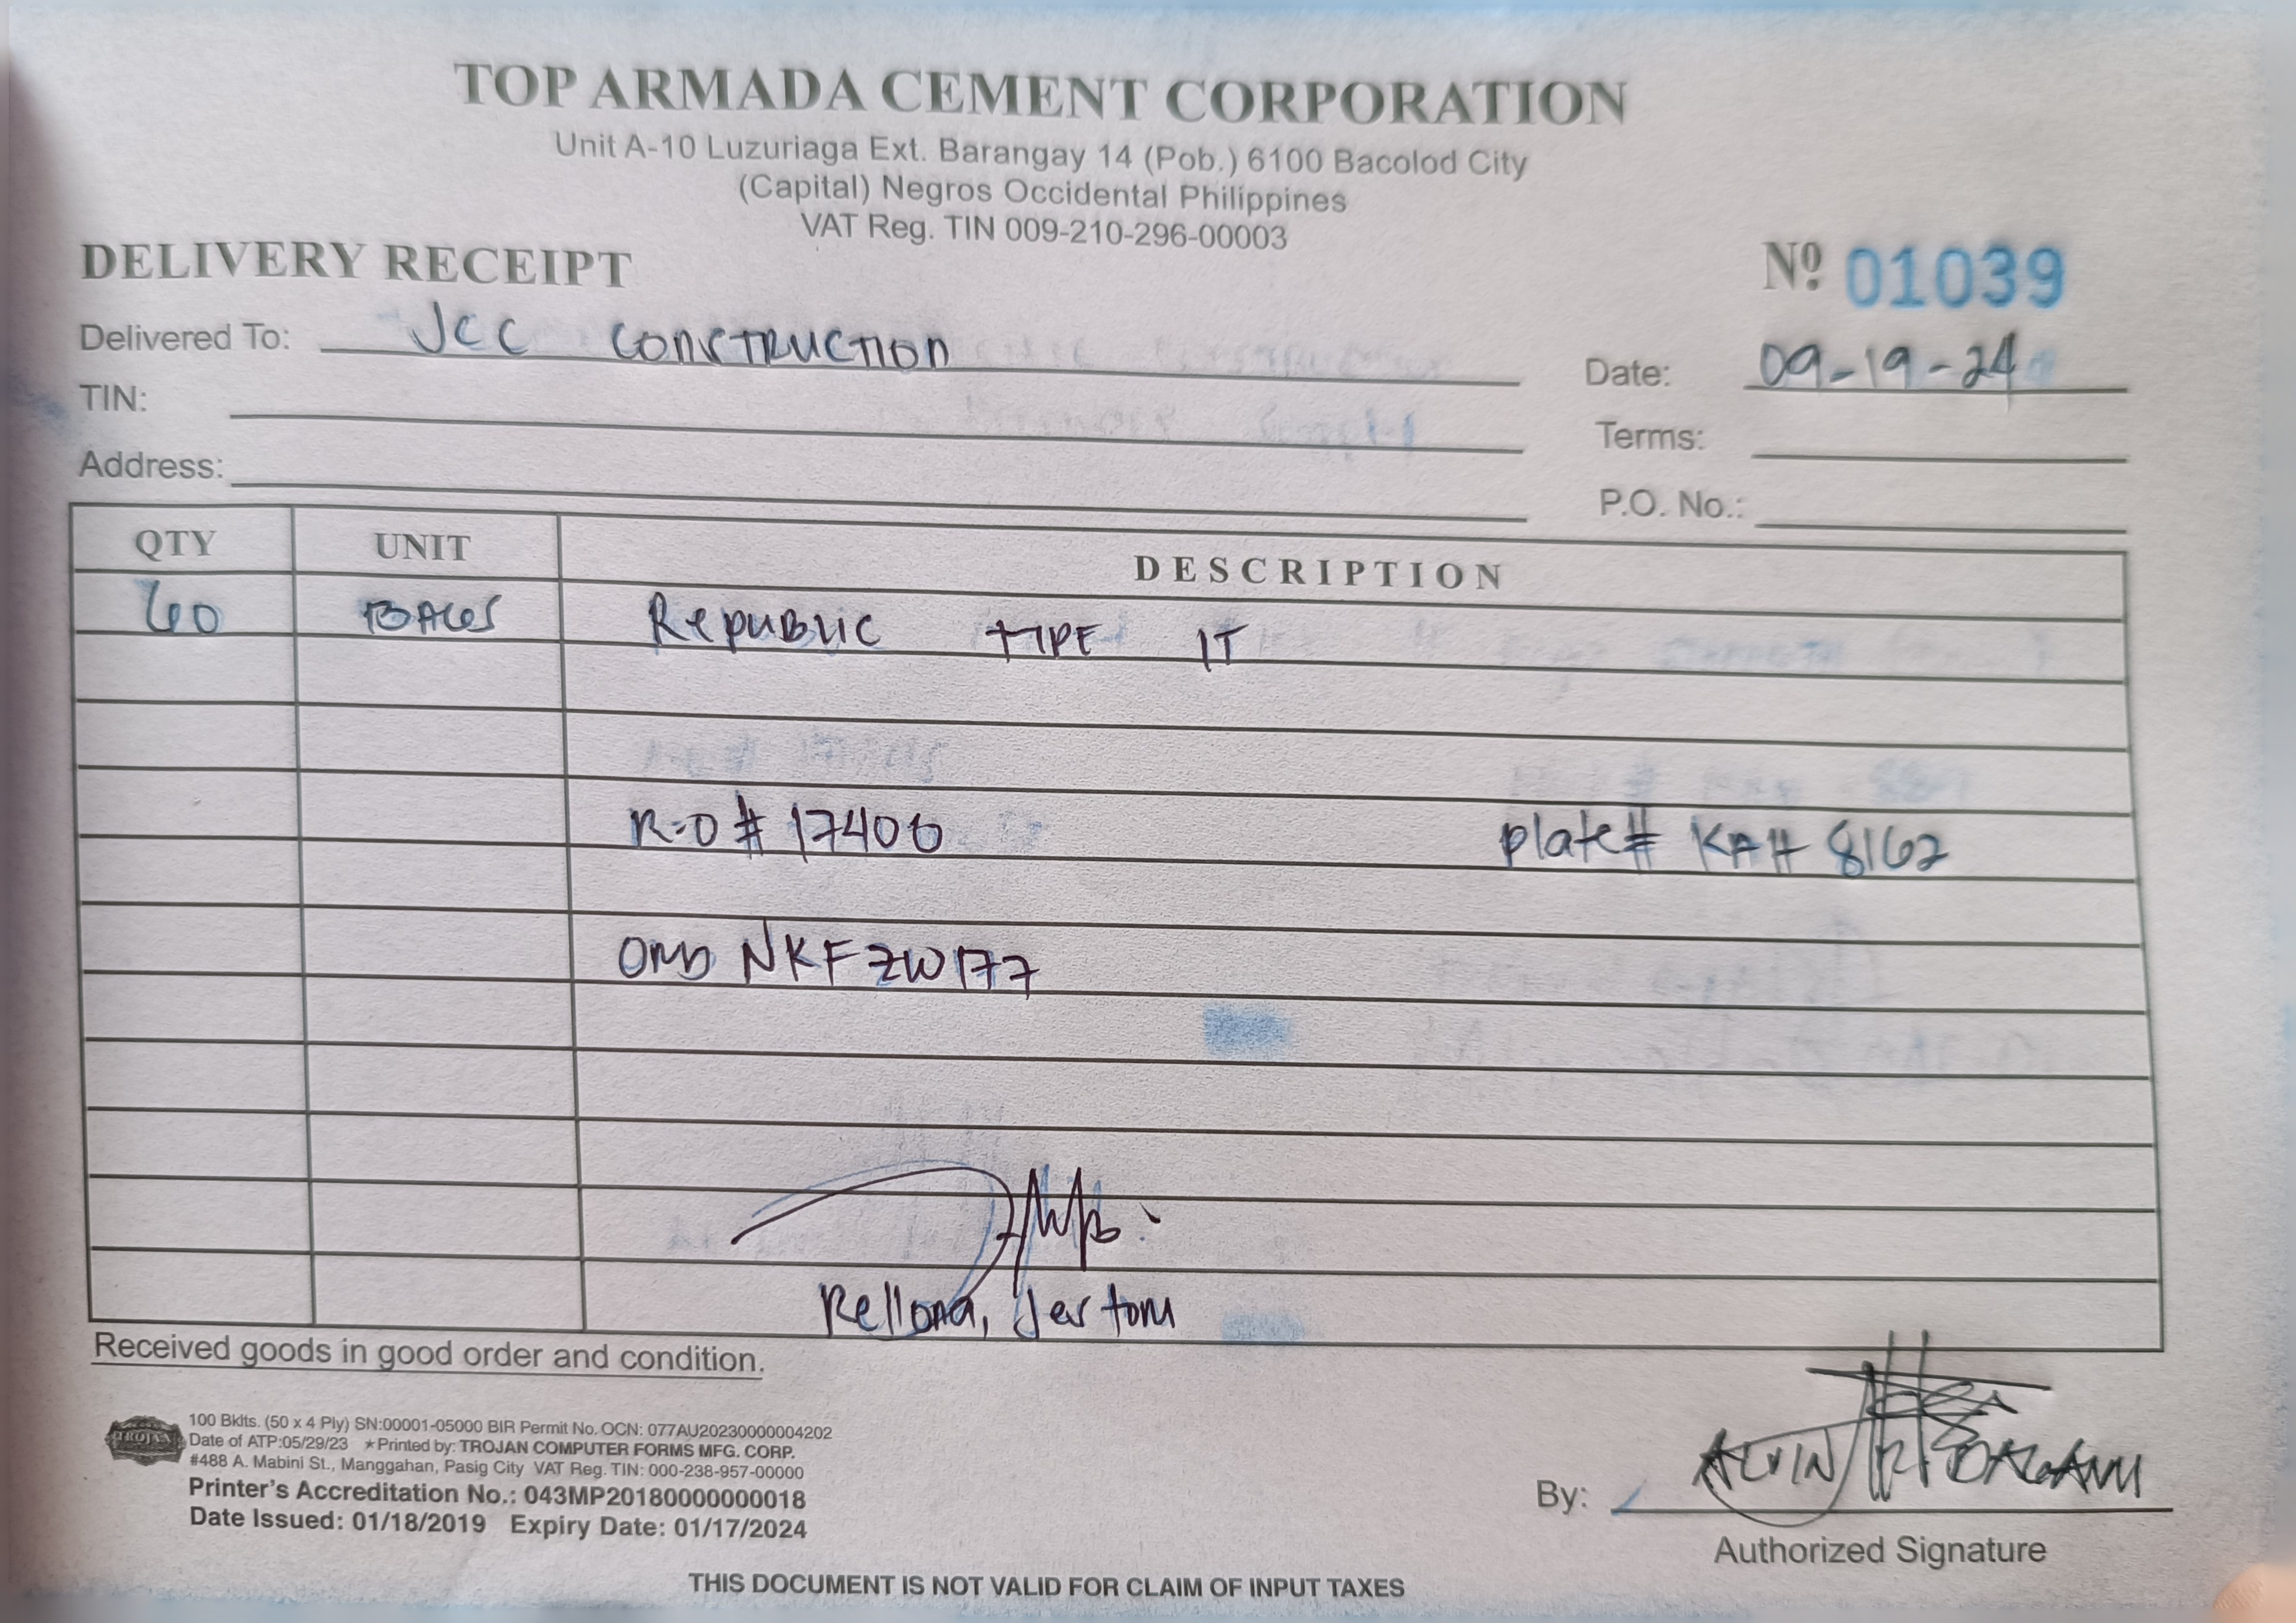 TOP ARMADA CEMENT CORPORATION
Unit A-10 Luzuriaga Ext. Barangay 14 (Pob.) 6100 Bacolod City
(Capital) Negros Occidental Philippines
VAT Reg. TIN 009-210-296-00003
DELIVERY RECEIPT
Nº 01039
Delivered To: JCC CONSTRUCTION
Date: 09-19-24
TIN:
Terms:
Address:
P.O. No.:
QTY UNIT DESCRIPTION
60 BAGS Republic TYPE 1T
R-O # 17406 plate# KAH 8162
NKFZW177
Rellona, Jer tom
Received goods in good order and condition.
TROJAN
100 Bklts. (50 x 4 Ply) SN:00001-05000 BIR Permit No. OCN: 077AU20230000004202
Date of ATP:05/29/23 ★Printed by: TROJAN COMPUTER FORMS MFG. CORP.
#488 A. Mabini St., Manggahan, Pasig City VAT Reg. TIN: 000-238-957-00000
Printer's Accreditation No.: 043MP20180000000018
Date Issued: 01/18/2019 Expiry Date: 01/17/2024
By: ALVIN
Authorized Signature
THIS DOCUMENT IS NOT VALID FOR CLAIM OF INPUT TAXES